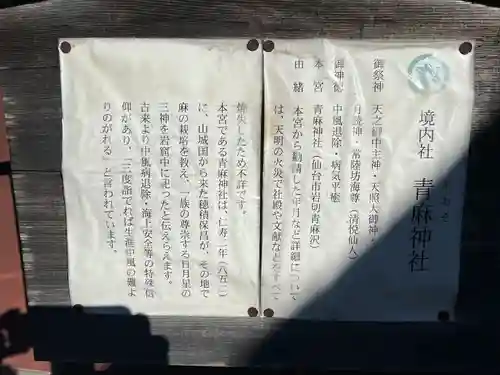 境内社　青麻神社
御祭神　天之御中主神・天照大御神・
月読神・常陸坊海尊（清悦仙人）
中風退除・病気平癒
本宮　青麻神社（仙台市岩切青麻沢）
由緒　本宮から勧請した年月など詳細について
は、天明の火災で社殿や文献などをすべて
焼失したため不詳です。
本宮である青麻神社は、仁寿二年（八五二）
に、山城国から来た穂積保昌が、その地で
麻の栽培を教え、一族の尊崇する日月星の
三神を岩窟中に祀ったと伝えらえます。
古来より中風病退除・海上安全等の特殊信
仰があり、「三度詣でれば生涯中風の難よ
りのがれる」と言われています。